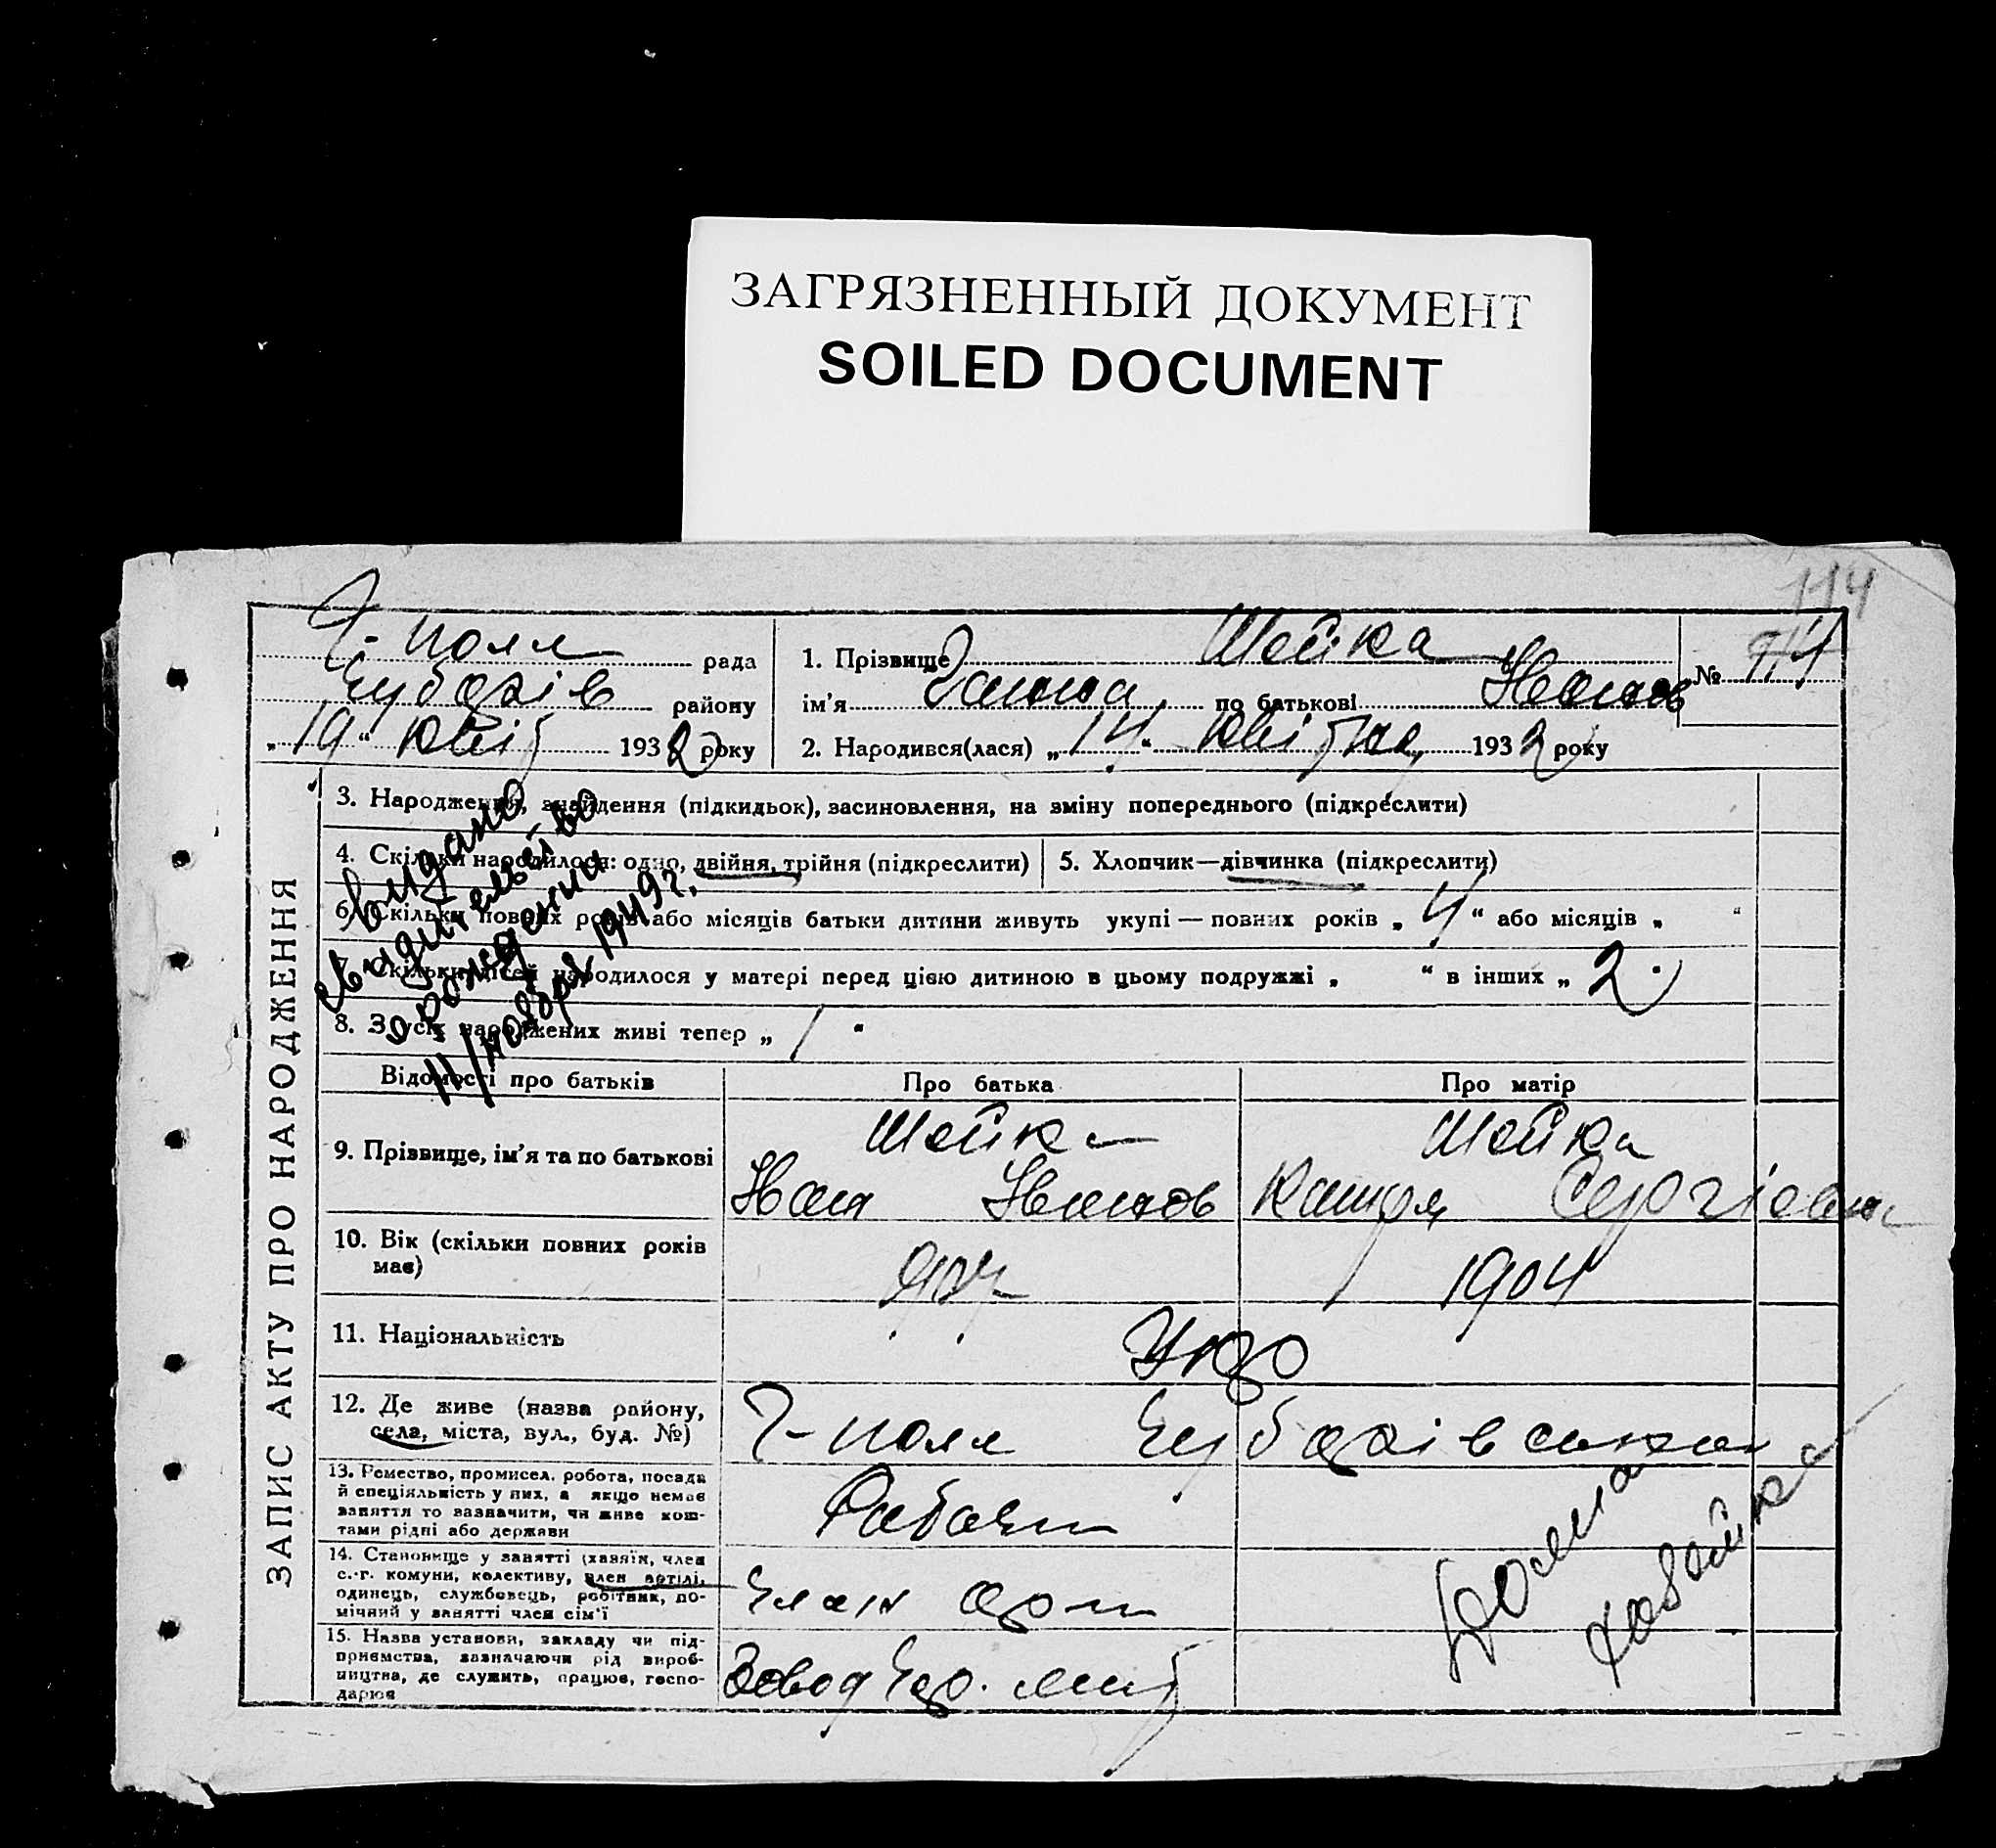 ЗАГРЯЗНЕННЫЙ ДОКУМЕНТ
SOILED DOCUMENT
114
Г-поля рада
Чубарів району
„19“ квіт 1932 року
1. Прізвище Шейка
ім’я Ганна по батькові Иванов
2. Народився(лася) „14“ квітня 1932 року
№ 114
ЗАПИС АКТУ ПРО НАРОДЖЕННЯ
3. Народження, знайдення (підкидьок), засиновлення, на зміну попереднього (підкреслити)
4. Скільки народилося: одно, двійня, трійня (підкреслити)
5. Хлопчик—дівчинка (підкреслити)
6. Скільки повних років або місяців батьки дитини живуть укупі — повних років „4“ або місяців „ “
7. Скільки дітей народилося у матері перед цією дитиною в цьому подружжі „ “ в інших „2
8. З усіх народжених живі тепер „1“
видано
свидительство
о рождении
11/ноября 1949г.
Відомості про батьків
Про батька
Про матір
9. Прізвище, ім’я та по батькові
Шейка
Иван Иванов
Шейка
Сергіевн
10. Вік (скільки повних років має)
1904
11. Національність
Укр
12. Де живе (назва району,
села, міста, вул., буд. №)
Г-поля Чубарівськой
13. Ремество, промисел, робота, посада
й спеціяльність у них, а якщо немає
заняття то зазначити, чи живе кош-
тами рідні або держави
Рабочи
14. Становище у занятті (хазяїн, член
с.-г. комуни, колективу, член артілі,
одинець, службовець, робітник, по-
мічний у занятті член сім’ї
Член арт
15. Назва установи, закладу чи під-
приємства, зазначаючи рід вироб-
ництва, де служить, працює, госпо-
дарює
Завод